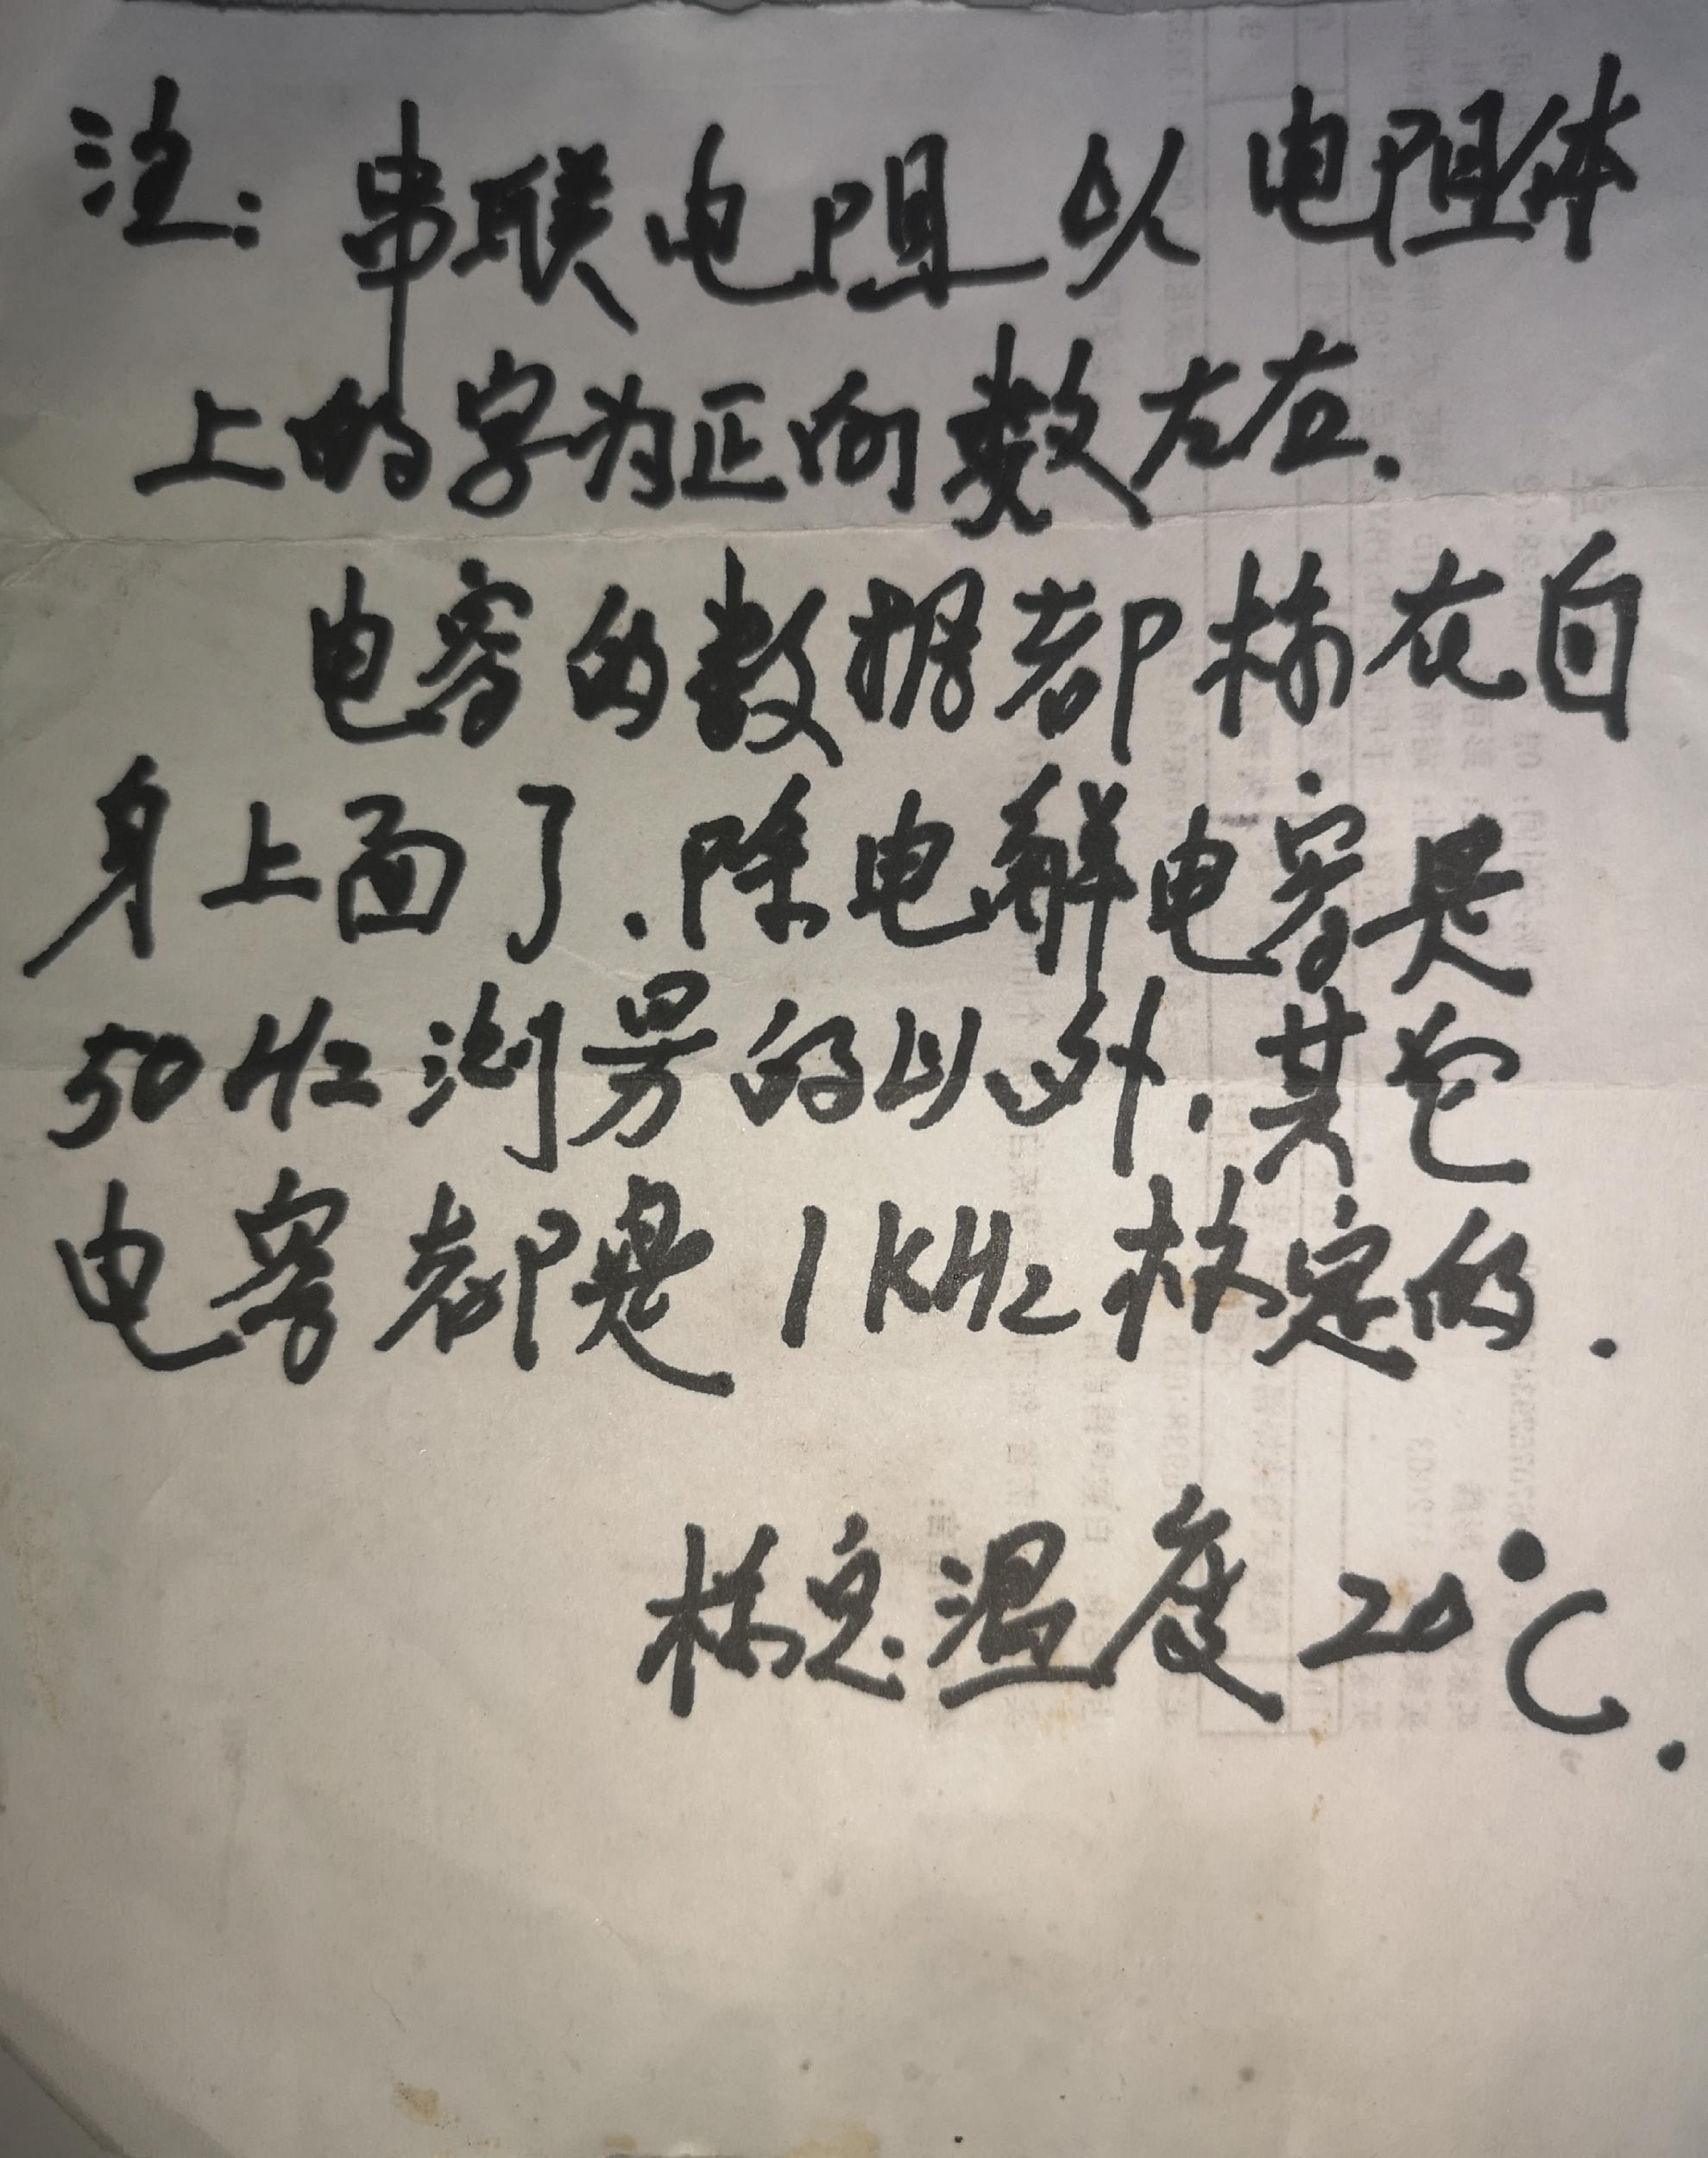 注：串联电阻以电阻体
上的字为正向数左右.
电容的数据都标在自
身上面了.除电解电容是
50Hz测量的以外.其它
电容都是1KHz标定的.
标定温度20℃.